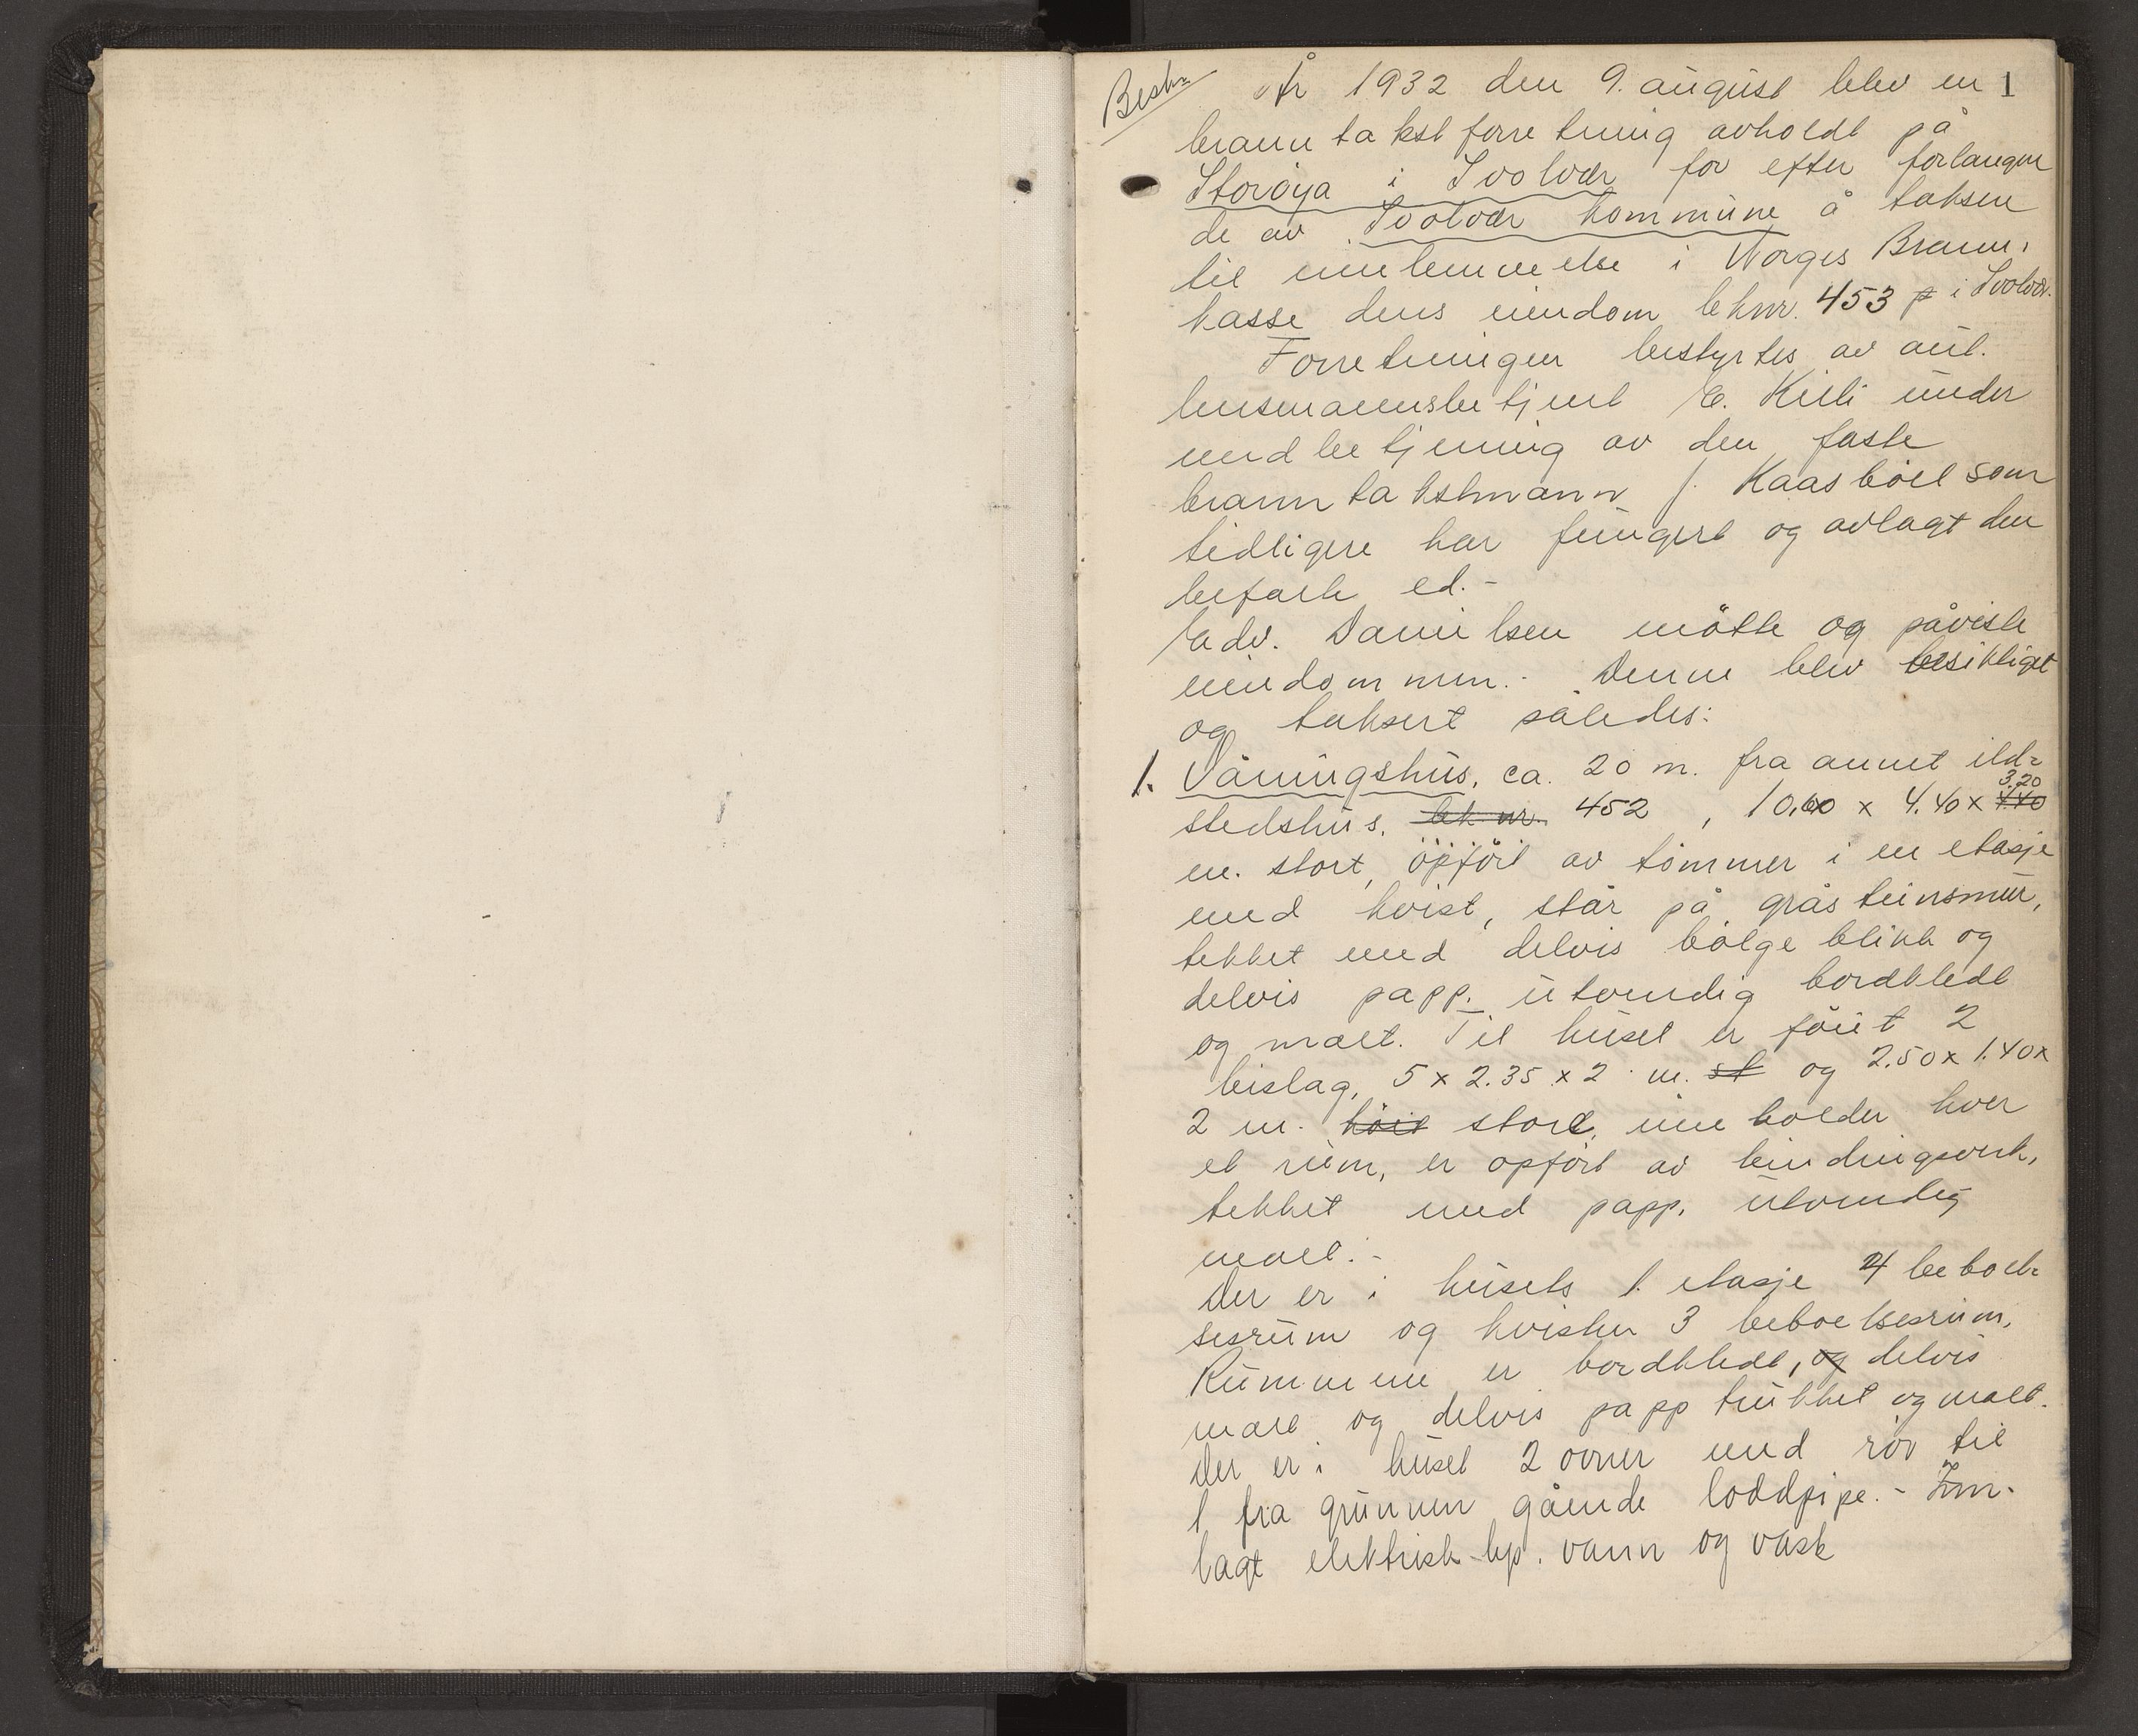 Besk=
År 1932 den 9. august blev en 1
branntakstforretning avholdt på
Storøya i Svolvær for efter forlangen
de av Svolvær kommune å taksere
til innlemmelse i Norges Brann-
kasse dens eiendom beknr. 453 i Svolvær.
Forretningen bestyrtes av aut.
lensmannsbetjent E. Kiili under
medbetjening av den faste
branntakstmann J. Kaasbøll som
tidligere har fungert og avlagt den
befalte ed.-
Adv. Danielsen møtte og påviste
eiendommen.- Denne blev besiktiget
og taksert således:
1. Våningshus, ca. 20 m. fra annet ild=
3.20
stedshus, bek nr. 452, 10,60 x 4.40 x 4.40
m. stort, opført av tømmer i en etasje
med kvist, står på gråsteinsmur,
tekket med delvis bølgeblikk og
delvis papp. utvendig bordkledt
og malt. Til huset er føiet 2
bislag, 5 x 2.35 x 2 m. st og 2.50 x 1.40 x
2 m. høit store, inneholder hver
et rum, er opført av bindingsverk,
tekket med papp. utvendig
malt.-
Der er i husets 1. etasje 4 beboel=
sesrum og kvisten 3 beboelsesrum.
Rummene er bordkledt, og delvis
malt og delvis papp trukket og malt.
Der er i huset 2 ovner med rør til
1 fra grunnen gående loddpipe.- Inn-
lagt elektrisk lys. vann og vask